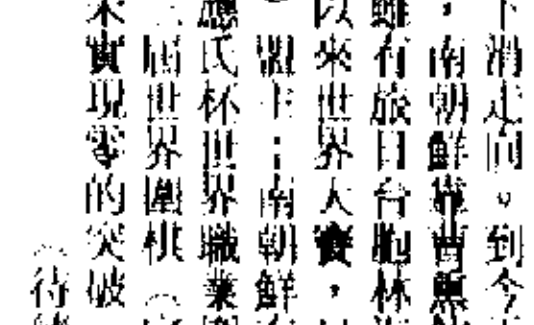 下滑走向。到今
，南朝鮮靠曹薰
雖有旅日台胞林海
以來世界大賽，
盟主；南朝鮮
應氏杯世界職業
三屆世界圍棋（
未實現零的突破
（待續